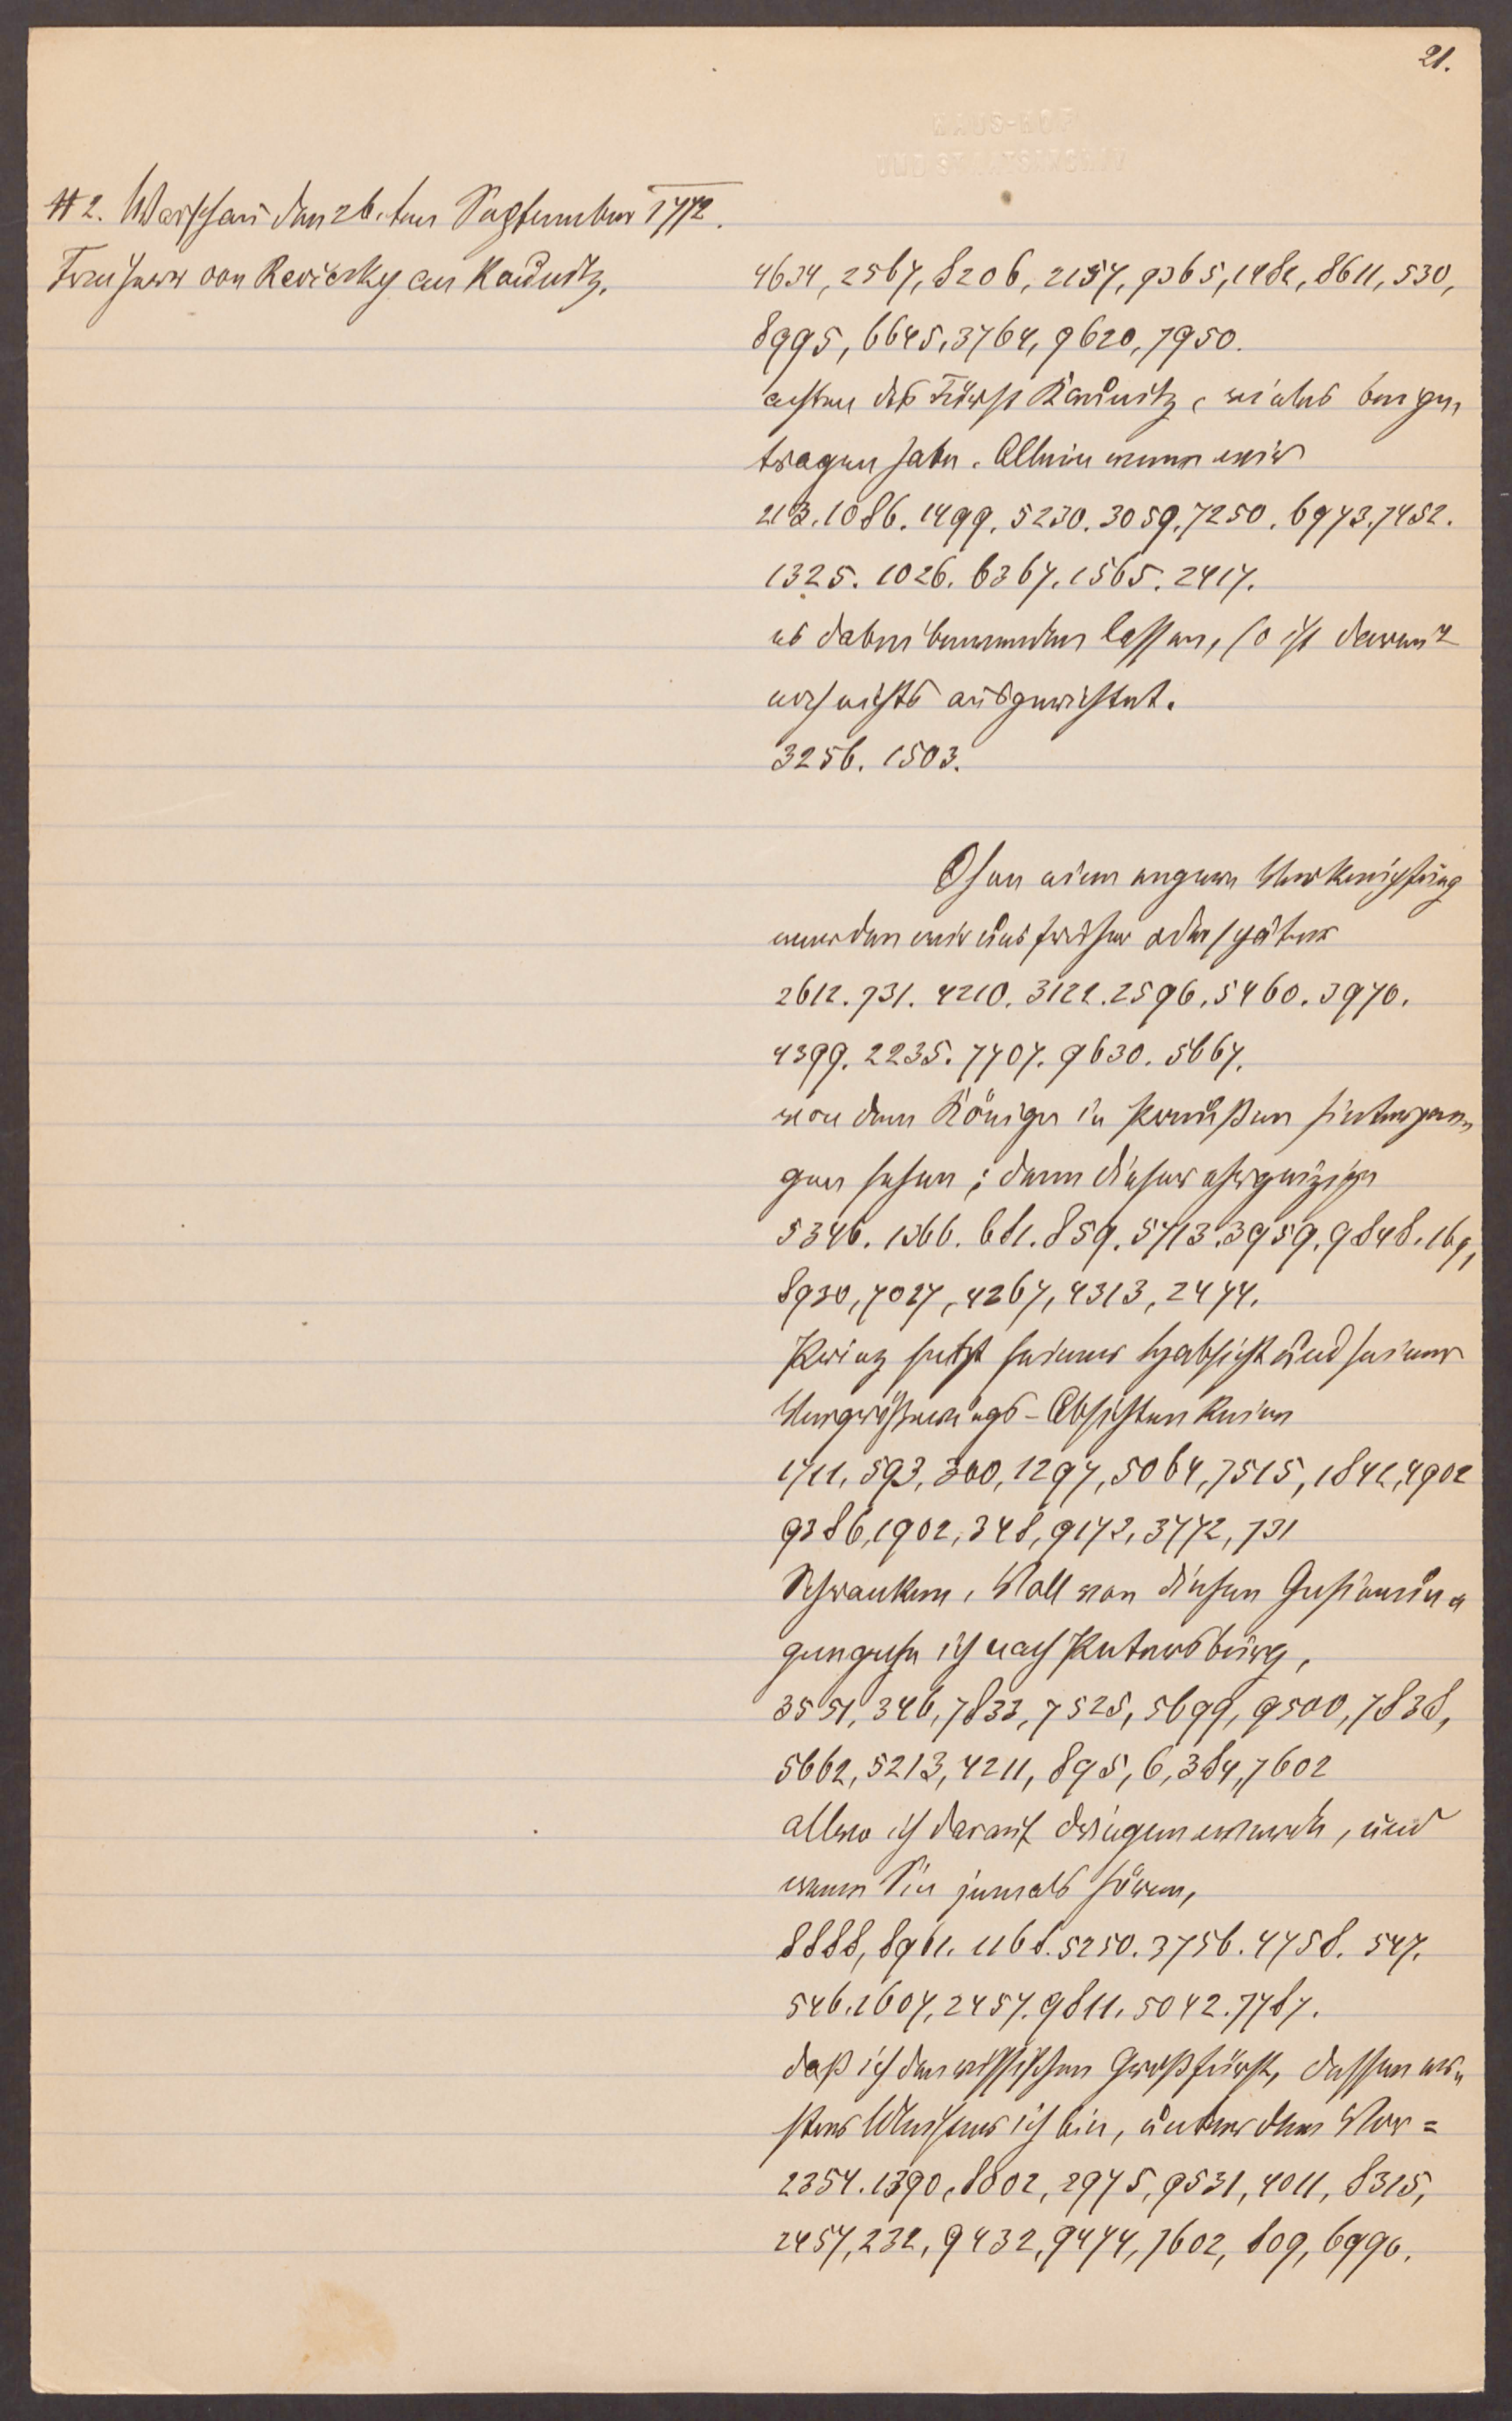 21.
HAUS-HOF
UND STAATSARCHIV
# 2. Warschau den 26. ten September 1772.
Freiherr von Reviczky an Kaunitz.
4634, 2567, 8206, 2157, 9365, 1482, 8611, 530,
8995, 6645, 3764, 9620, 7950.
achten des Fürst Kaunitz, vieles beyge,
tragen habe. Allein wenn wir
213. 1086. 1499. 5230. 3059. 7250. 6973. 7452.
1325. 1026. 6367. 1565. 2417.
es dabei bewenden lassen, so ist darum
noch nichts ausgerichtet.
3256. 1503.
Ohne eine engere Verknüpfung
werden wir uns früher oder später
2612. 731. 4210. 3122. 2596. 5460. 3970.
4399. 2235. 7707. 9630. 5667.
von dem Könige in Preußen hintergan,
gen sehen; denn dieser ehrgeizige
5346. 1366. 681. 859. 5713. 3959. 9848. 169,
8930, 7027, 4267, 4313, 2474.
Prinz setzt seiner Habsicht und seinen
Vergrößerungs-Absichten keine
1711, 593, 300, 1297, 5064, 7515, 1842, 4902
9386, 1902, 348, 9172, 3772, 731
Schranken, Voll von diesen Gesinnun=
gen gehe ich nach Petersburg,
3551, 346, 7833, 7525, 5699, 9500, 7838,
5662, 5213, 4211, 895, 6, 384, 7602
allwo ich darauf dringen werde, und
wenn Sie jemals hören,
8888, 8961. 1168. 5250. 3756. 4758. 547.
546. 1607, 2457. 9811. 5042. 7787.
daß ich den russischen Großfürst, dessen er=
ster ich bin, unter dem Vor=
2354. 1390, 8802, 2975, 9531, 4011, 8315,
2457, 232, 9432, 9474, 7602, 809, 6990.